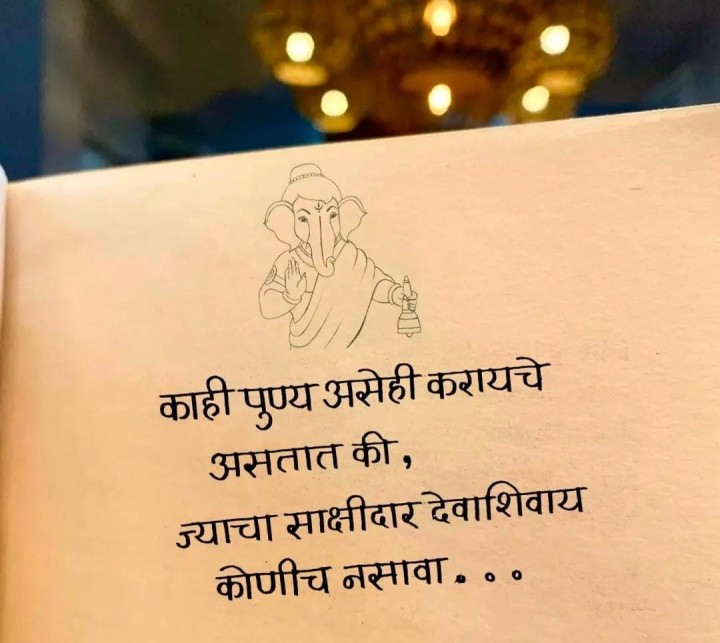 काही पुण्य असेही करायचे
असतात की,
ज्याचा साक्षीदार देवाशिवाय
कोणीच नसावा...